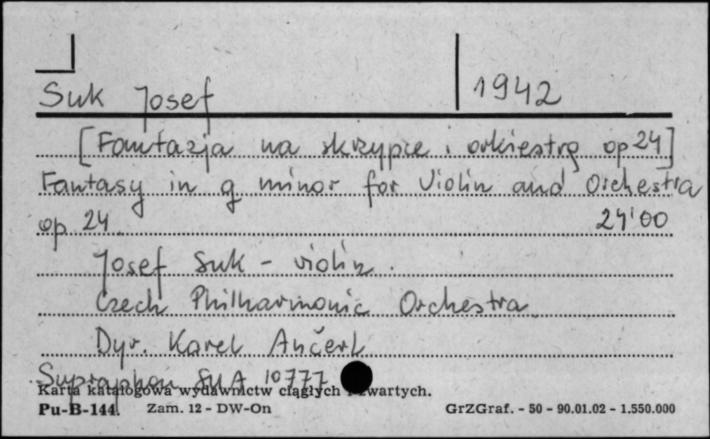 Suk Josef 1942
[Fantazja na skrzypce i orkiestrę op 24]
Fantasy in g minor for Violin and Orchestra
op 24 24'00
Josef Suk - violin.
Czech Philharmonic Orchestra
Dyr. Karel Ančerl
Supraphon SUA 10777
Karta katalogowa wydawnictw ciągłych i zwartych.
Pu-B-144. Zam. 12 - DW-On GrZGraf. - 50 - 90.01.02 - 1.550.000